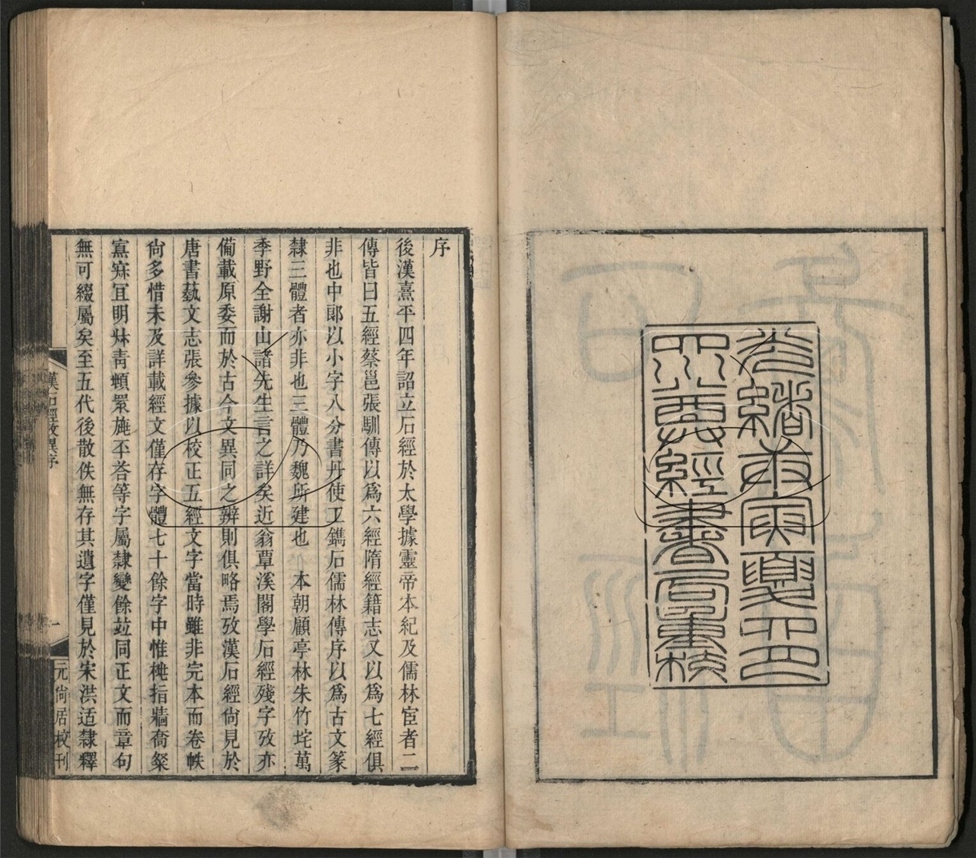 光緒庚寅夏四月
尚莊經書局重校
序
後漢熹平四年詔立石經於太學據靈帝本紀及儒林宦者二
傳皆曰五經蔡邕張馴傳以為六經隋經籍志又以為七經俱
非也中郎以小字八分書丹使工鐫石儒林傳序以為古文篆
隸三體者亦非也三體乃魏所建也 本朝顧亭林朱竹垞萬
季野全謝山諸先生言之詳矣近翁覃溪閣學石經殘字攷亦
備載原委而於古今文異同之辨則俱略焉攷漢石經尙見於
唐書藝文志張參據以校正五經文字當時雖非完本而卷帙
尙多惜未及詳載經文僅存字體七十餘字中惟桃指牆喬粲
寡寐冝明牀青頓眾旌平荅等字屬隸變餘竝同正文而章句
無可綴屬矣至五代後散佚無存其遺字僅見於宋洪适隸釋
漢石經攷異序
一
元尙居校刊